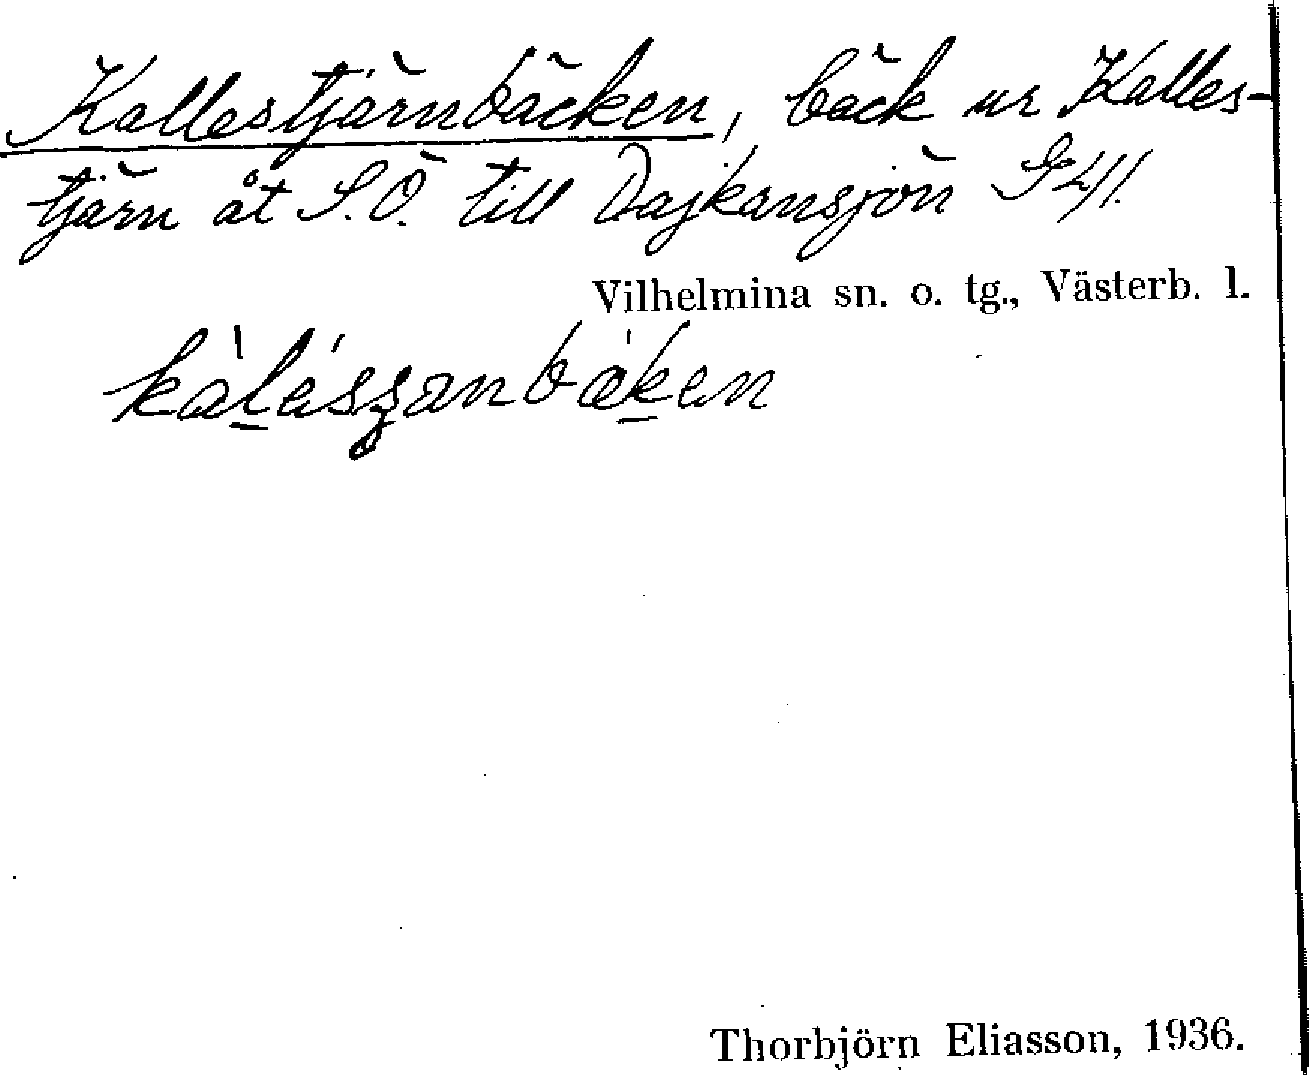 Kallestjärnbäcken, bäck ur Kalles-
tjärn åt S.Ö. till Dajkansjön
Vilhelmina sn. o. tg., Västerb. l.
Thorbjörn Eliasson, 1936.